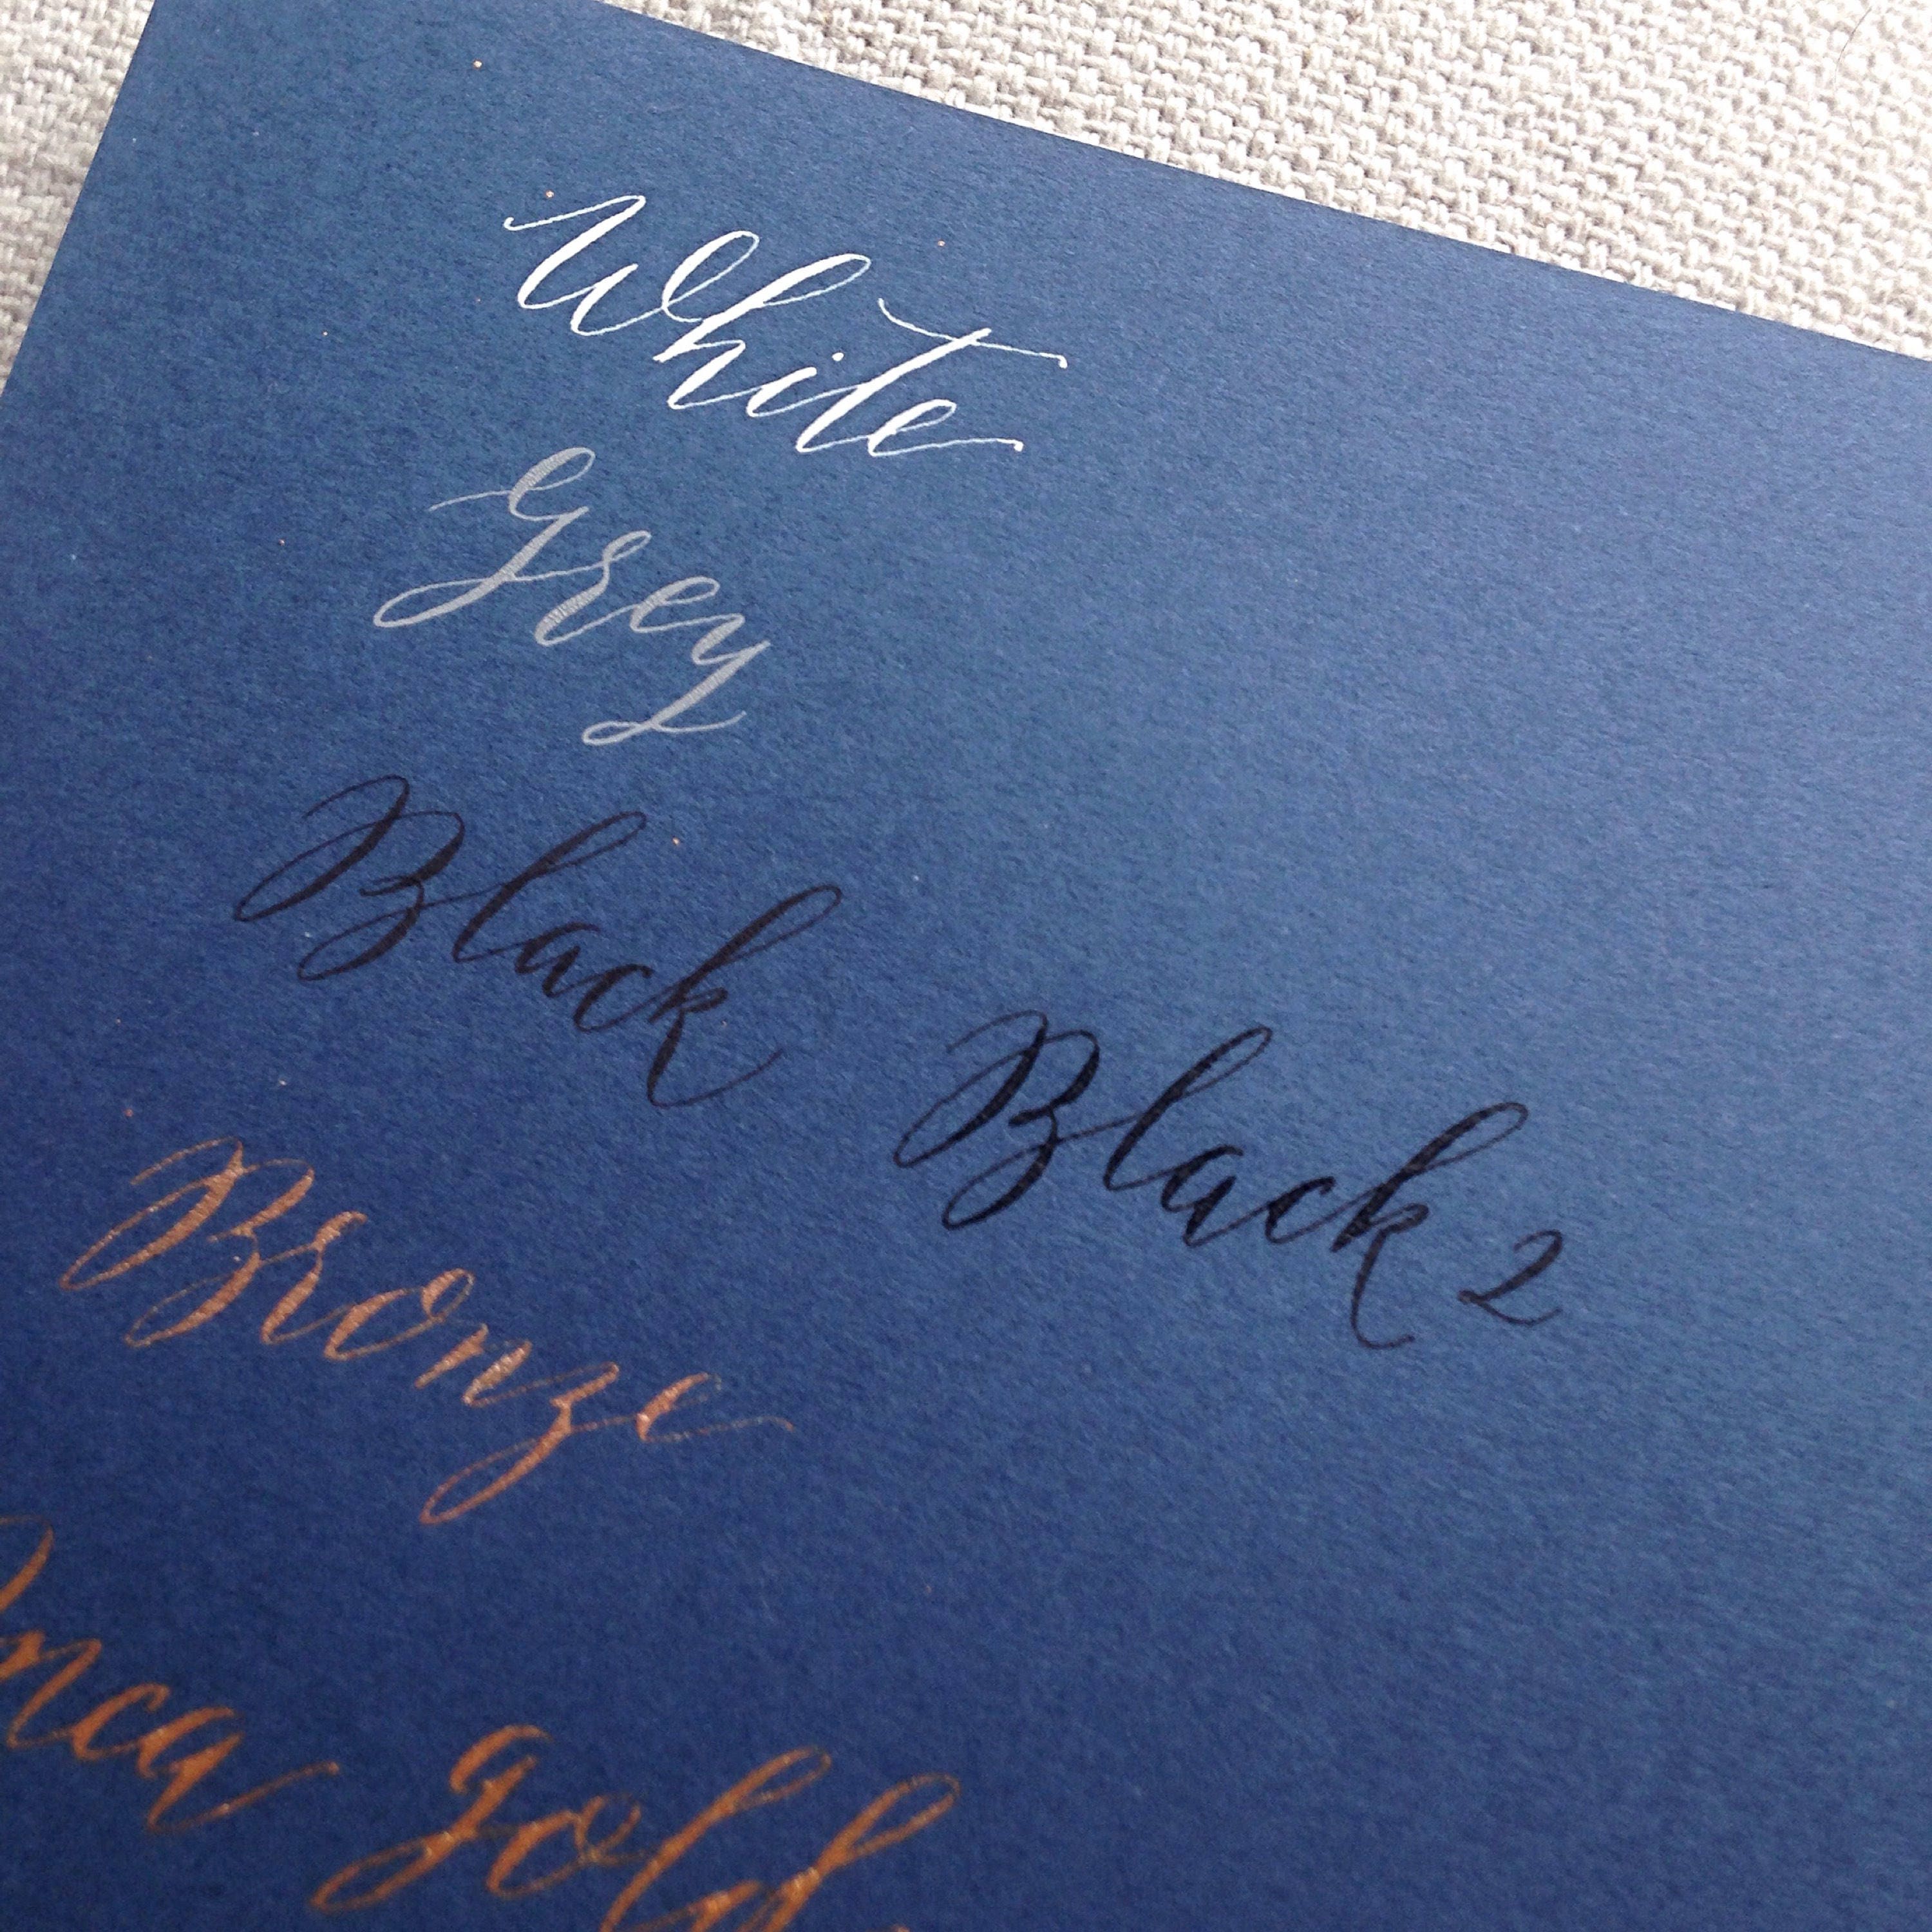 White
Grey
Black Black 2
Bronze
Inca gold